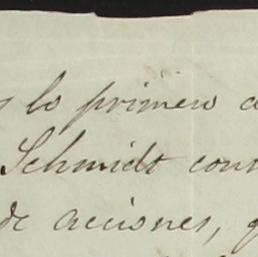 lo primero
Schmidt con
de acciones,